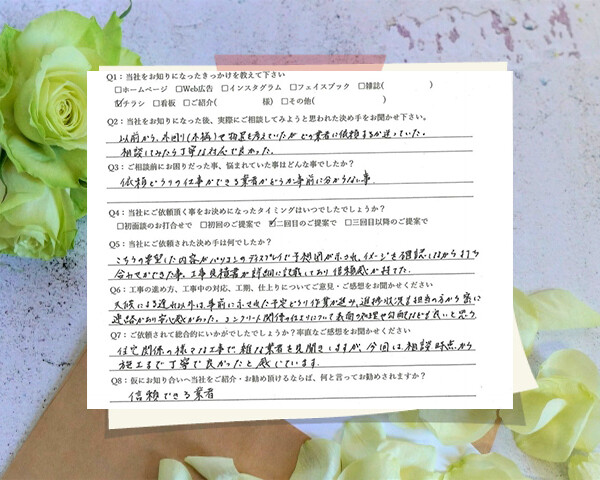 Q1：当社をお知りになったきっかけを教えて下さい
□ホームページ □Web広告 □インスタグラム □フェイスブック □雑誌( )
☑チラシ □看板 □ご紹介( 様) □その他( )
Q2：当社をお知りになった後、実際にご相談してみようと思われた決め手をお聞かせ下さい。
以前から、外回り(外構)や物置を考えていたがどの業者に依頼するか迷っていた。
相談してみたら丁寧な対応で良かった。
Q3：ご相談前にお困りだった事、悩まれていた事はどんな事でしたか？
依頼どうりの仕事ができる業者かどうか事前に分からない事
Q4：当社にご依頼頂く事をお決めになったタイミングはいつでしたでしょうか？
□初面談のお打合せで □初回のご提案で ☑二回目のご提案で □三回目以降のご提案で
Q5：当社にご依頼された決め手は何でしたか？
こちらの要望した内容がパソコンのディスプレイで予想図が示され、イメージを確認しながら打ち
合わせができた事、工事見積書が詳細に記載しており信頼感が持てた。
Q6：工事の進め方、工事中の対応、工期、仕上りについてご意見・ご感想をお聞かせください
天候による遅れ以外は、事前に示された予定どうり作業が進み、進捗状況も担当の方から密に
連絡があり安心感があった。コンクリート関係の仕上りについて表面の処理や勾配なども良いと思う
Q7：ご依頼されて総合的にいかがでしたでしょうか？率直なご感想をお聞かせください
住宅関係の様々な工事で雑な業者を見聞きしますが、今回は、相談時点から
施工まで丁寧で良かったと感じています。
Q8：仮にお知り合いへ当社をご紹介・お勧め頂けるならば、何と言ってお勧めされますか？
信頼できる業者